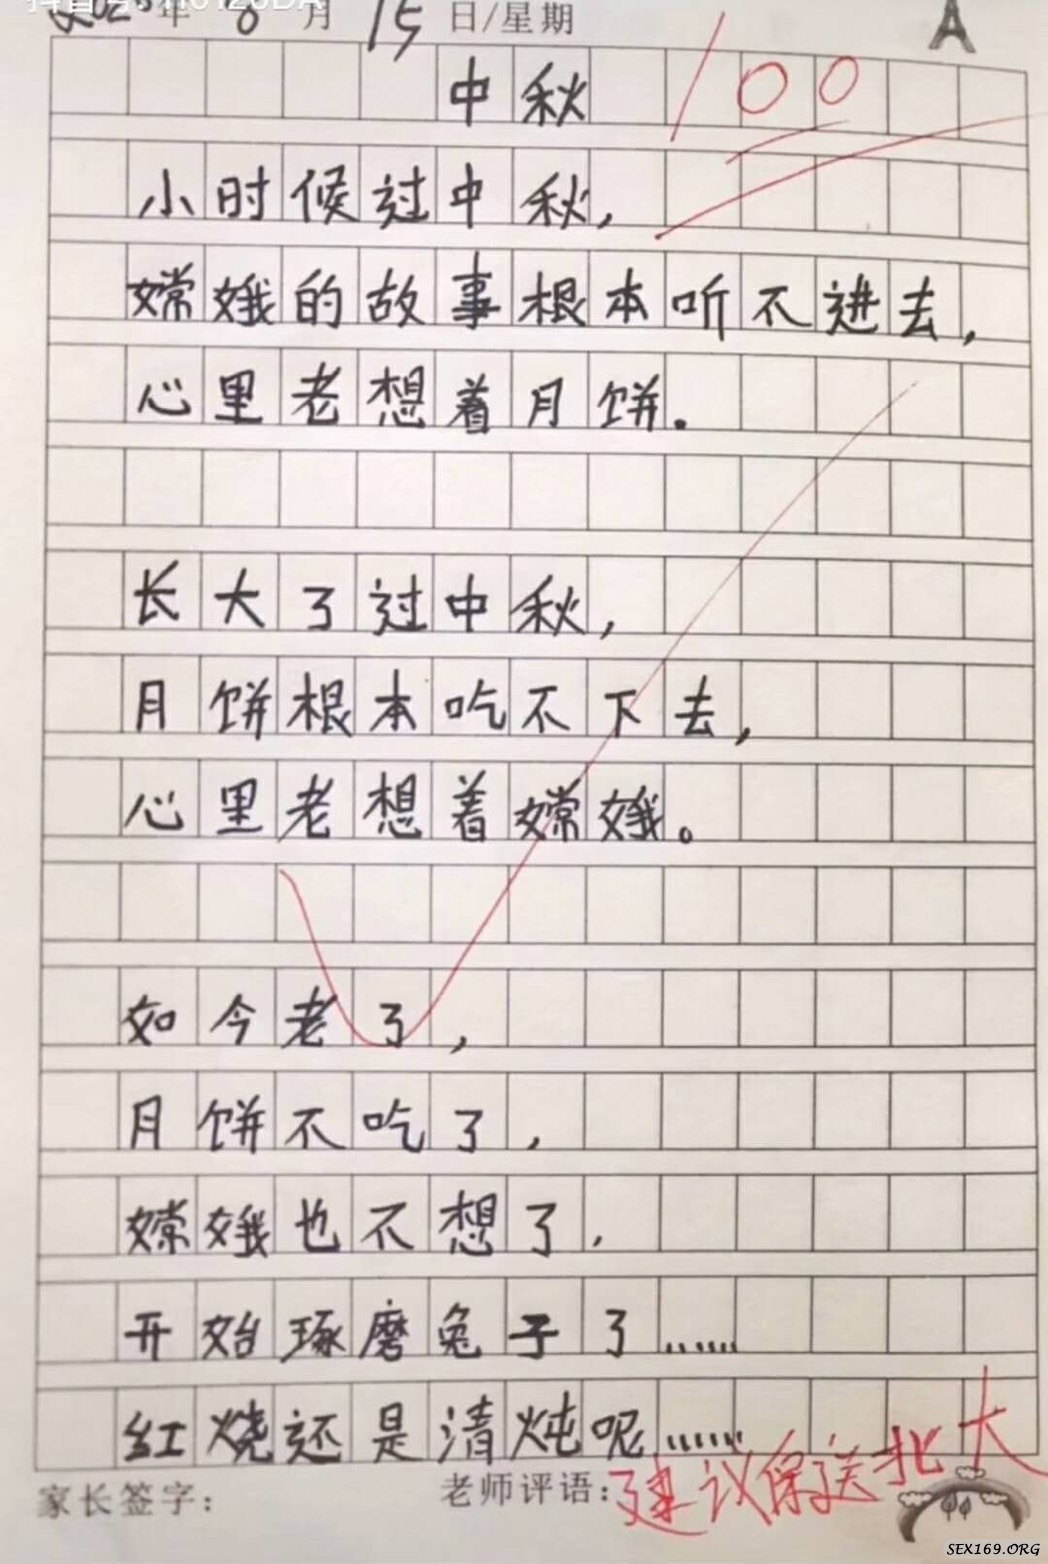 年 8 月 15 日/星期
中秋 100
小时候过中秋,
嫦娥的故事根本听不进去,
心里老想着月饼.
长大了过中秋,
月饼根本吃不下去,
心里老想着嫦娥。
如今老了,
月饼不吃了,
嫦娥也不想了,
开始琢磨兔子了……
红烧还是清炖呢……
家长签字:
老师评语:建议保送北大
SEX169.ORG